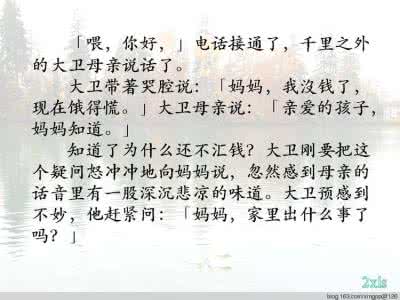 「喂，你好，」电话接通了，千里之外
的大卫母亲说话了。
大卫带著哭腔说：「妈妈，我沒钱了，
现在饿得慌。」大卫母亲说：「亲爱的孩子，
妈妈知道。」
知道了为什么还不汇钱？大卫刚要把这
个疑问怒冲冲地向妈妈说，忽然感到母亲的
话音里有一股深沉悲凉的味道。大卫预感到
不妙，他赶紧问：「妈妈，家里出什么事了
吗？」
2xls